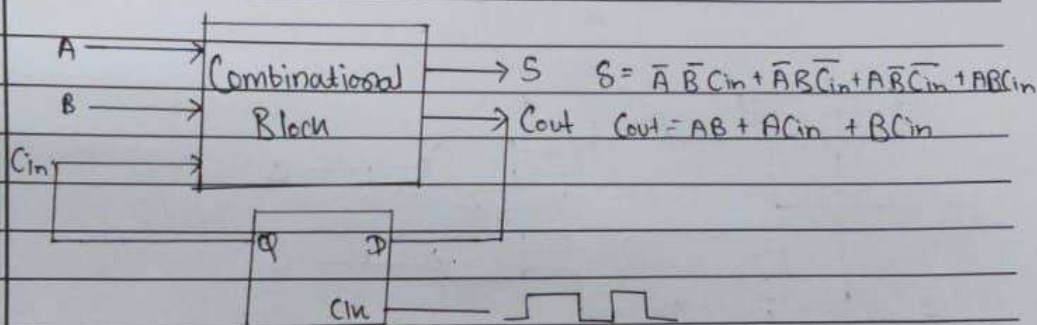 A
Combinational
Block
B
Cin
S S = A̅ B̅ Cin + A̅ B C̅i̅n̅ + A B̅ C̅i̅n̅ + ABCin
Cout Cout = AB + ACin + BCin
Q D
Clk